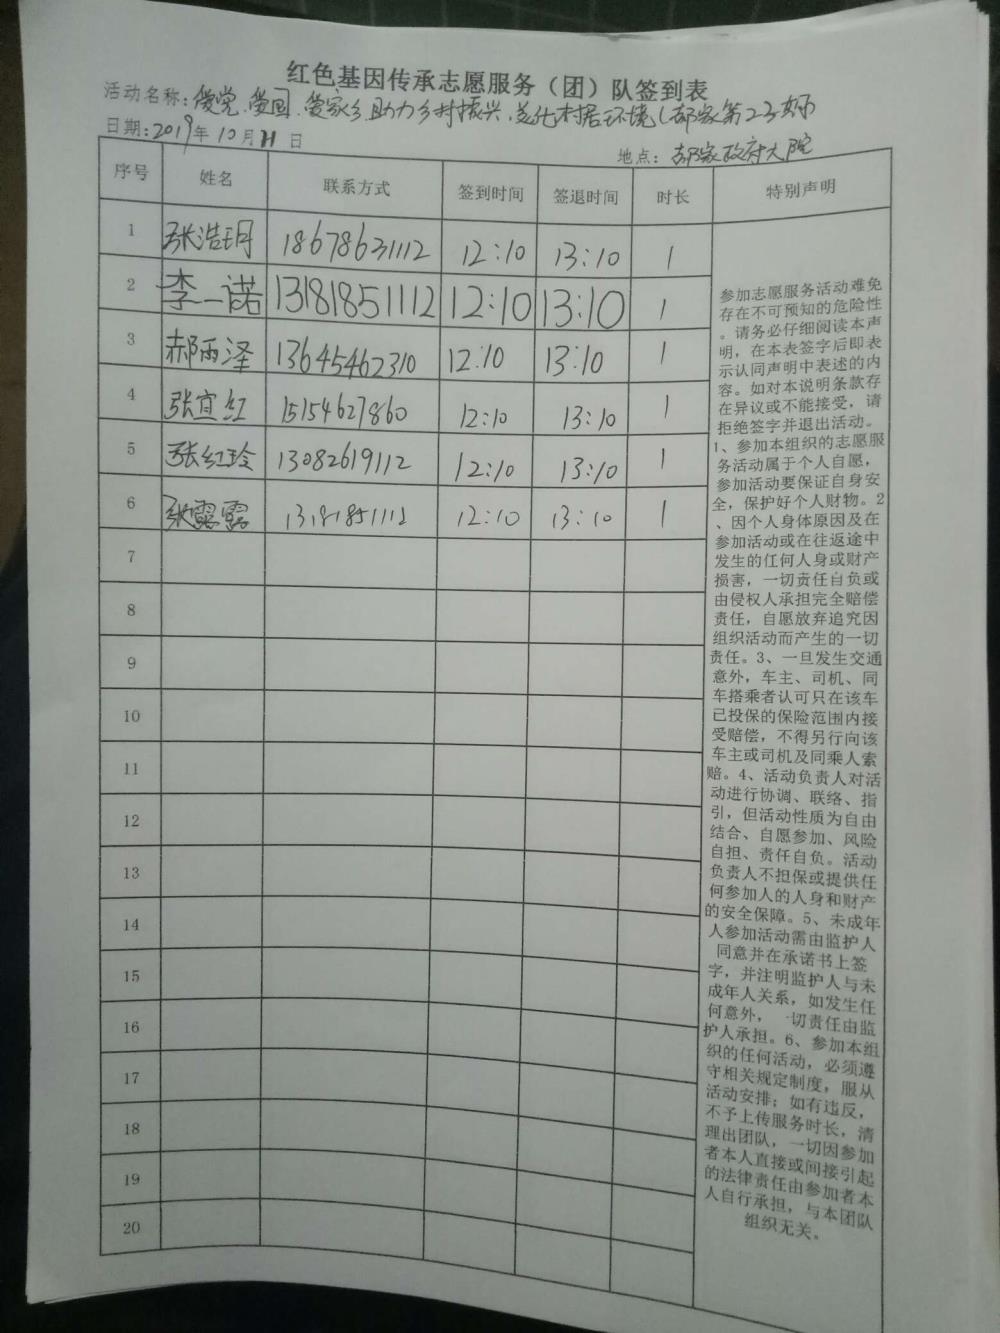 红色基因传承志愿服务（团）队签到表
活动名称：爱党、爱国、爱家乡助力乡村振兴、美化村居环境（郝家第23
日期：2019年10月21日
地点：郝家政府大院
序号 姓名 联系方式 签到时间 签退时间 时长 特别声明
1 张浩玥 18678631112 12:10 13:10 1
2 李一诺 13181851112 12:10 13:10 1
3 郝雨泽 13645462310 12:10 13:10 1
4 张宜红 15154627860 12:10 13:10 1
5 张红玲 13082619112 12:10 13:10 1
6 张露露 13181851112 12:10 13:10 1
7
8
9
10
11
12
13
14
15
16
17
18
19
20
参加志愿服务活动难免
存在不可预知的危险性
。请务必仔细阅读本声
明，在本表签字后即表
示认同声明中表述的内
容。如对本说明条款存
在异议或不能接受，请
拒绝签字并退出活动。
1、参加本组织的志愿服
务活动属于个人自愿，
参加活动要保证自身安
全，保护好个人财物。2
、因个人身体原因及在
参加活动或在往返途中
发生的任何人身或财产
损害，一切责任自负或
由侵权人承担完全赔偿
责任，自愿放弃追究因
组织活动而产生的一切
责任。3、一旦发生交通
意外，车主、司机、同
车搭乘者认可只在该车
已投保的保险范围内接
受赔偿，不得另行向该
车主或司机及同乘人索
赔。4、活动负责人对活
动进行协调、联络、指
引，但活动性质为自由
结合、自愿参加、风险
自担、责任自负。活动
负责人不担保或提供任
何参加人的人身和财产
的安全保障。5、未成年
人参加活动需由监护人
同意并在承诺书上签
字，并注明监护人与未
成年人关系，如发生任
何意外，一切责任由监
护人承担。6、参加本组
织的任何活动，必须遵
守相关规定制度，服从
活动安排；如有违反，
不予上传服务时长，清
理出团队，一切因参加
者本人直接或间接引起
的法律责任由参加者本
人自行承担，与本团队
组织无关。